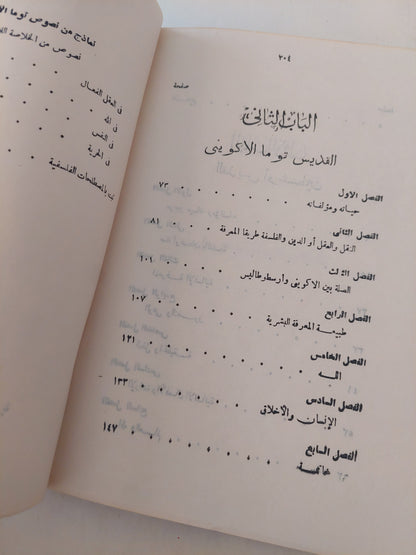 ٢٠٤
صفحة
الباب الثاني
القديس توما الاكويني
الفصل الاول
حياته ومؤلفاته ٧٣
الفصل الثاني
النقل والعقل أو الدين والفلسفة طريقا المعرفة ٨١
الفصل الثالث
الصلة بين الاكويني وأرسطوطاليس ١٠١
الفصل الرابع
طبيعة المعرفة البشرية ١٠٧
الفصل الخامس
الله ١٢١
الفصل السادس
الإنسان والأخلاق ١٣٣
الفصل السابع
خاتمة ١٤٧
نماذج من نصوص توما
نصوص من الخلاصة
في العقل الفعال
في الله
في النفس
في الحرية
بالمصطلحات الفلسفية